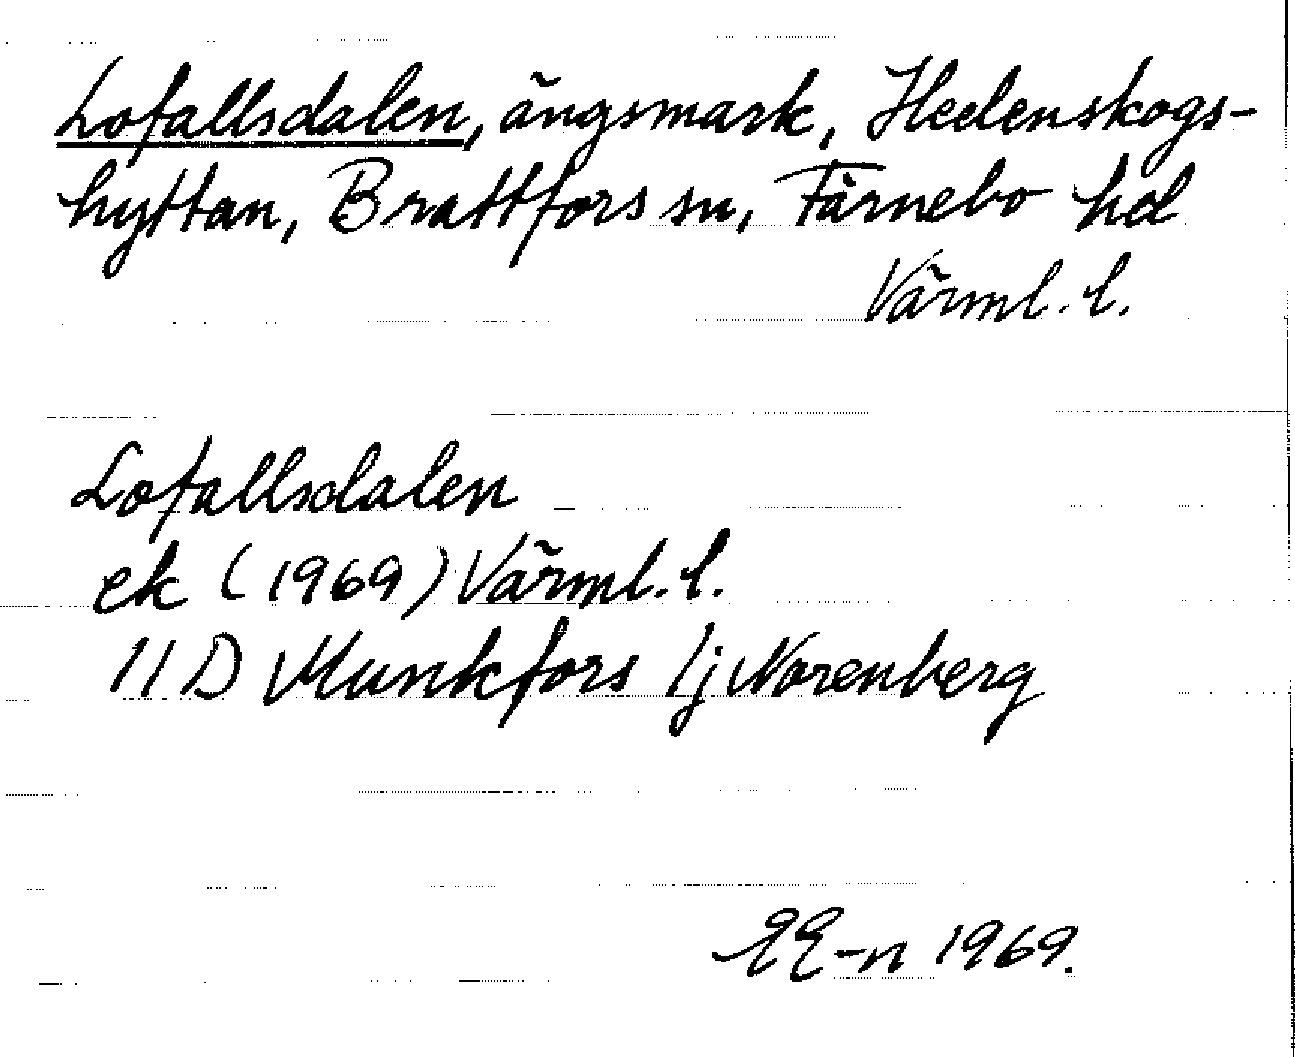 Lofallsdalen, ängsmark, Hedenskogs-
hyttan, Brattfors sn, Färnebo hd
Värml. l.
Lofallsdalen
ek (1969) Värml. l.
11 D Munkfors 1j Norenberg
EE-n 1969.